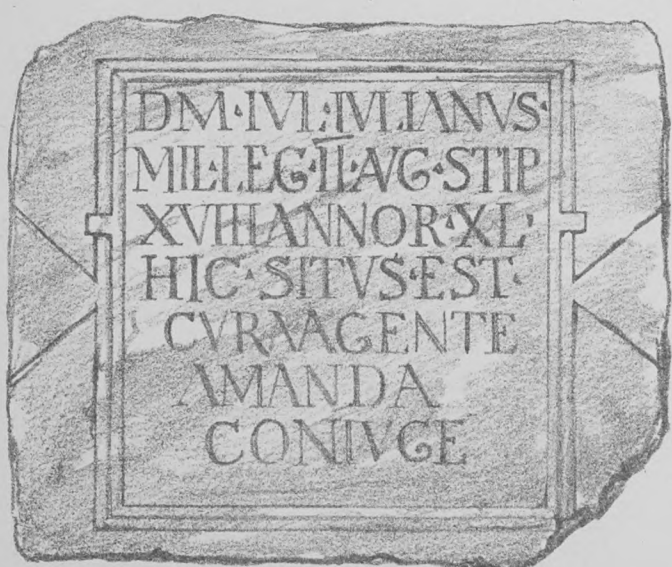 DM·IVL·IVLIANVS·
MIL·LEG·II·AVG·STIP
XVIII ANNOR·XL·
HIC·SITVS·EST·
CVRA AGENTE
AMANDA
CONIVGE